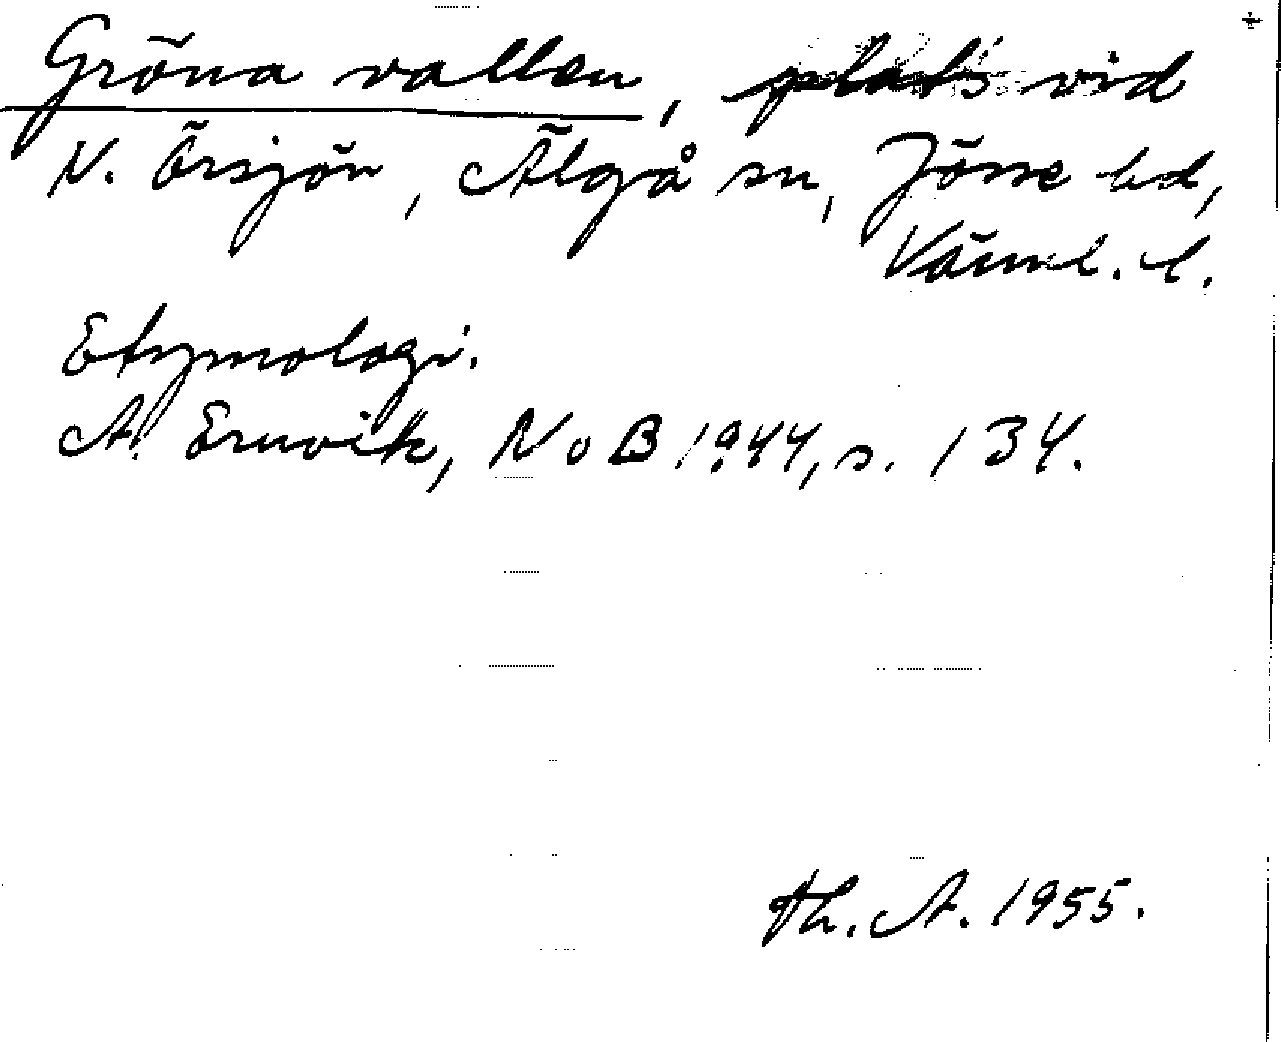 Gröna vallen, plats vid
N. Örsjön, Älgå sn, Jösse hd,
Värml. l.
Etymologi.
A. Ernvik, NoB 1944, s. 134.
Th. A. 1955.